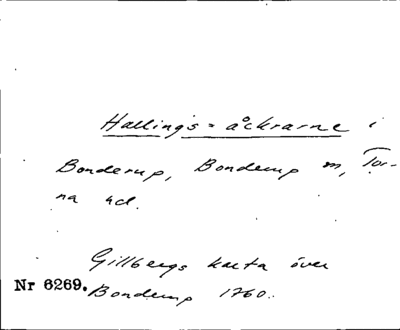 Hallings=åckrarne i
Bonderup, Bonderup m, Tor-
na hd.
Gillbergs karta över
Nr 6269. Bonderup 1760.